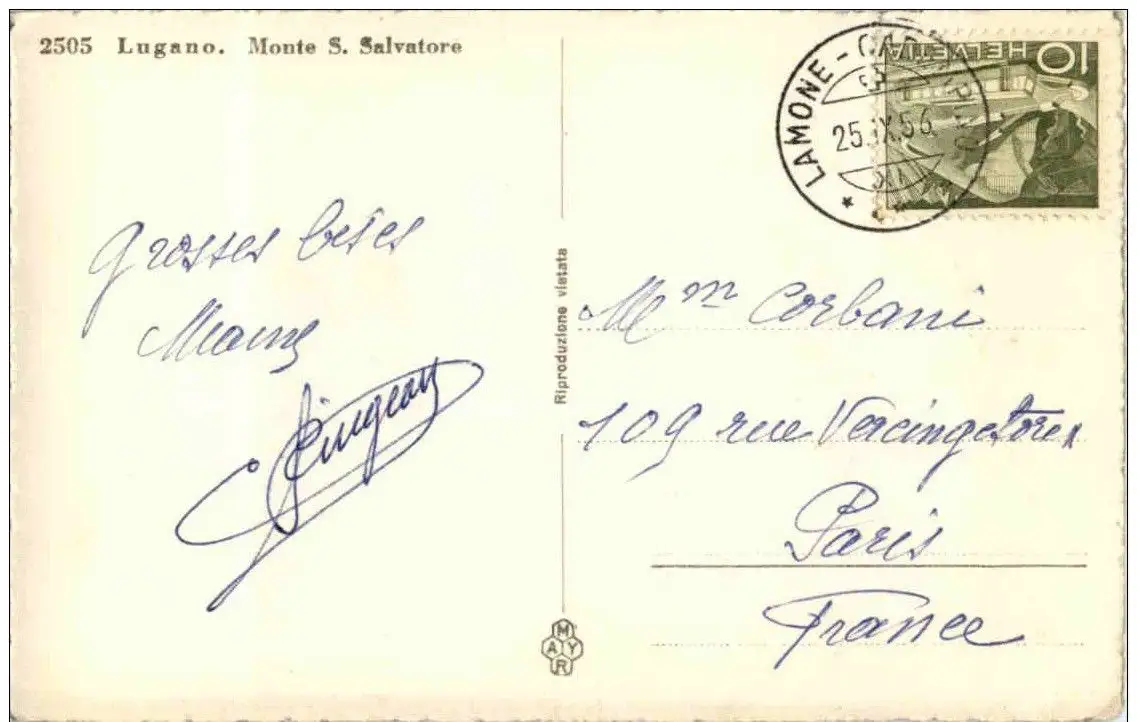 2505 Lugano. Monte S. Salvatore
10 HELVETIA
LAMONE - CADEMPINO
25.IX.56
Grosses bises
Riproduzione vietata
Mme Corbani
109 rue Vercingetorex
Paris
France
MAYR